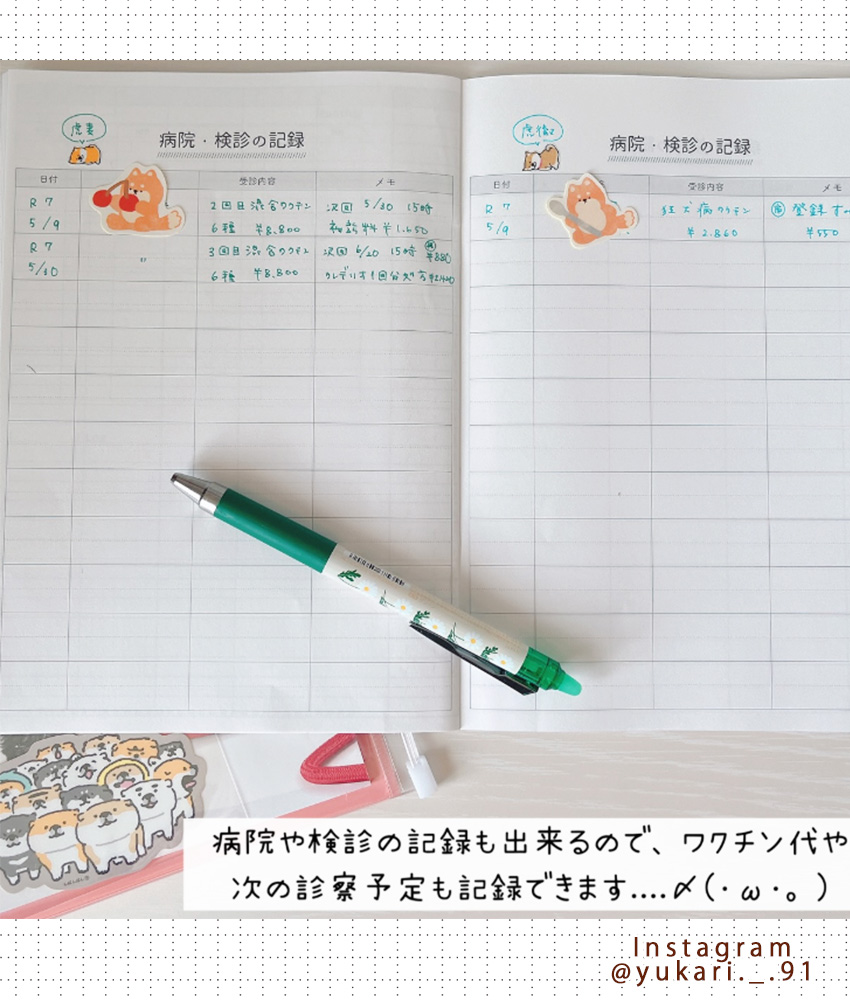 病院・検診の記録
日付 受診内容 メモ
R 7 2回目混合ワクチン 次回 5/30 15時
5/9 6種 ¥8.800 初診料 ¥1.650
R 7 3回目混合ワクチン 次回 6/20 15時
¥880
5/30 〃 6種 ¥8.800 クレデリオ1回分処方
病院・検診の記録
日付 受診内容 メモ
R 7 狂犬病ワクチン 登録
5/9 ¥2.860 ¥550
病院や検診の記録も出来るので、ワクチン代や
次の診察予定も記録できます....〆(・ω・。)
Instagram
@yukari._.91